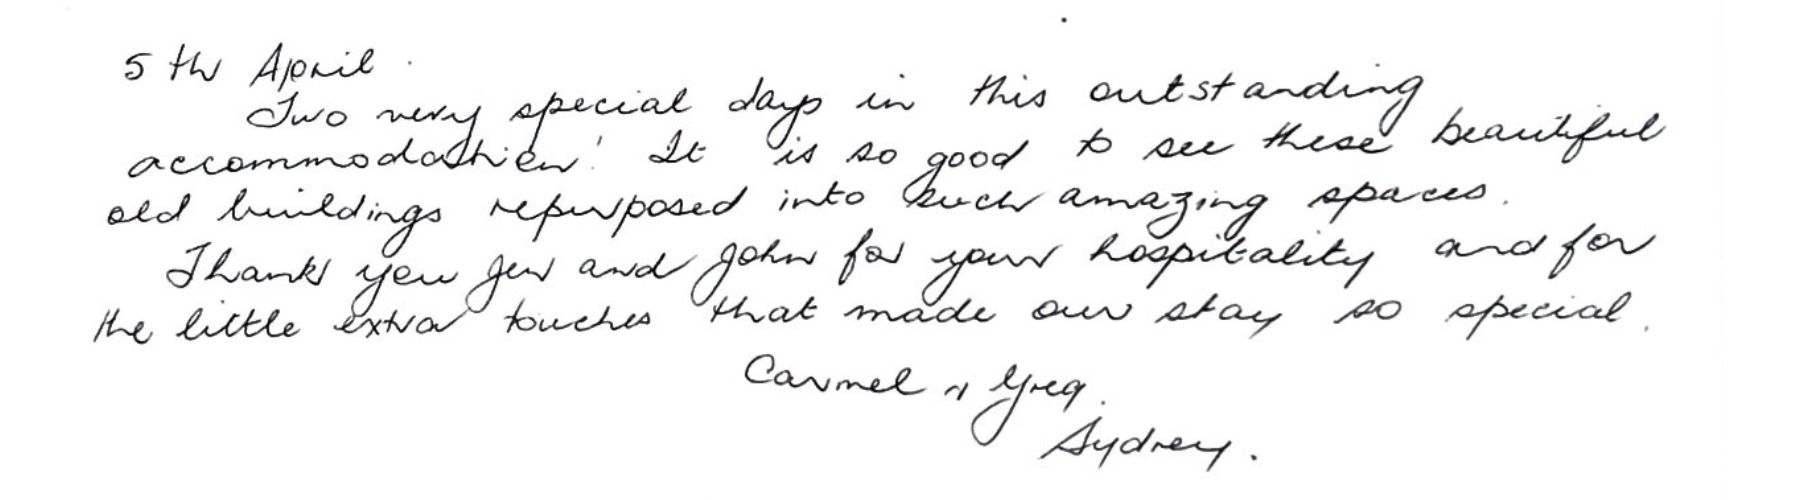 5th April.
Two very special days in this outstanding
accommodation! It is so good to see these beautiful
old buildings repurposed into such amazing spaces.
Thank you Jen and John for your hospitality and for
the little extra touches that made our stay so special.
Carmel & Greg.
Sydney.